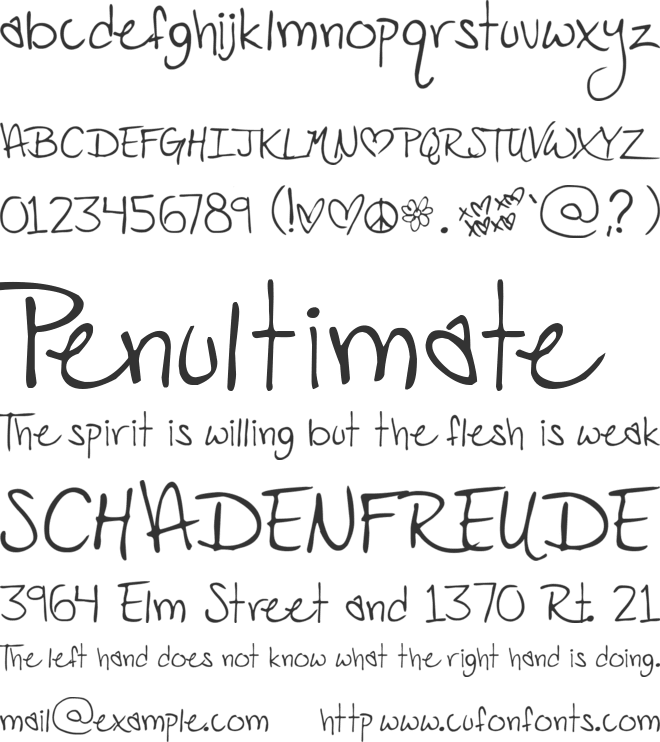 abcdefghijklmnopqrstuvwxyz
ABCDEFGHIJKLMN♡PQRSTUVWXYZ
0123456789 (!♡♡☮. `@,?)
Penultimate
The spirit is willing but the flesh is weak
SCHADENFREUDE
3964 Elm Street and 1370 Rt. 21
The left hand does not know what the right hand is doing.
mail@example.com http www.cufonfonts.com